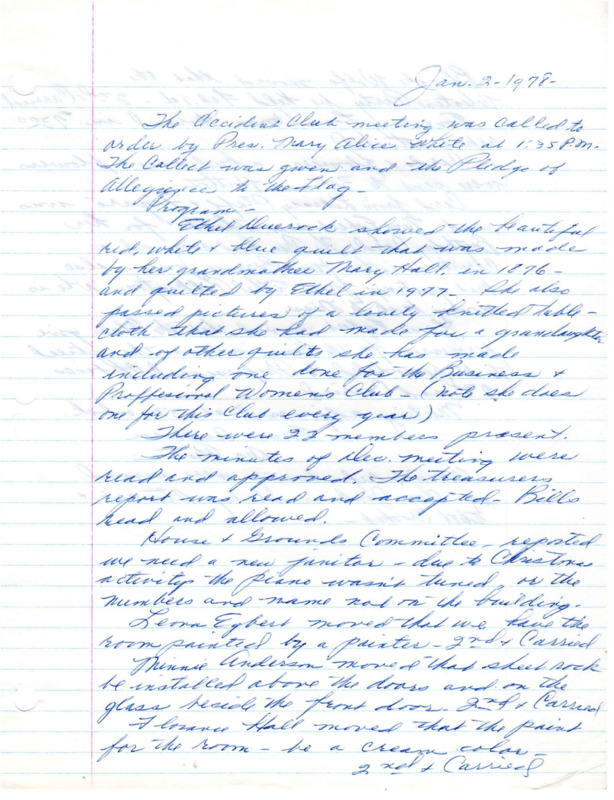 Jan. 2-1978-
The Occident Club meeting was called to
order by Pres. Mary Alice White at 1:35 P.M.
The Collect was given and the Pledge of
Allegiance to the Flag-
Program-
Ethel showed the beautiful
red, white & blue quilt that was made
by her grandmother Mary Hall, in 1876-
and quilted by Ethel in 1977- She also
passed pictures of a lovely knitted table-
cloth that she had made for a grandaughter
and of other quilts she has made
including one done for the Business &
Proffesional Women's Club- (note she does
one for this Club every year)
There were 22 members present.
The minutes of Dec. meeting were
read and approved. The treasurers
report was read and accepted- Bills
read and allowed.
House & Grounds Committee- reported
we need a new janitor- due to Christmas
activity the piano wasn't tuned, or the
numbers and name not on the building.
Leona Egbert moved that we have the
room painted by a painter- 2nd & Carried
Minnie Anderson moved that sheet rock
be installed above the doors and on the
glass beside the front door. 2nd & Carried
Florance Hall moved that the paint
for the room- be a cream color-
2nd & Carried